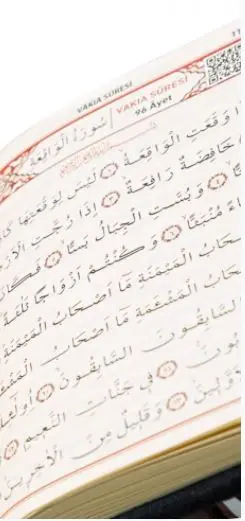 VAKIA SÛRESİ
VAKIA SÛRESİ
96 Âyet
سُورَةُ الْوَاقِعَةِ
وَقَعَتِ الْوَاقِعَةُ ﴿١﴾ لَيْسَ لِوَقْعَتِهَا
خَافِضَةٌ رَافِعَةٌ ﴿٣﴾ إِذَا رُجَّتِ
وَبُسَّتِ الْجِبَالُ بَسًّا ﴿٥﴾ فَكَانَتْ
مُنْبَثًّا ﴿٦﴾ وَكُنْتُمْ أَزْوَاجًا ثَلٰثَةً
الْمَيْمَنَةِ مَا أَصْحَابُ الْمَيْمَنَةِ
الْمَشْـَٔمَةِ مَا أَصْحَابُ
السَّابِقُونَ ﴿١٠﴾ أُولٰٓئِكَ
فِي جَنَّاتِ النَّعِيمِ ﴿١٢﴾
وَقَلِيلٌ مِنَ الْاٰخِرِينَ